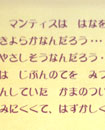 マンティスは はなを
きよらかなんだろう・・・
やさしそうなんだろう・・・
は じぶんのてを みつ
んしていた かまのつい
みにくくて、はずかしく